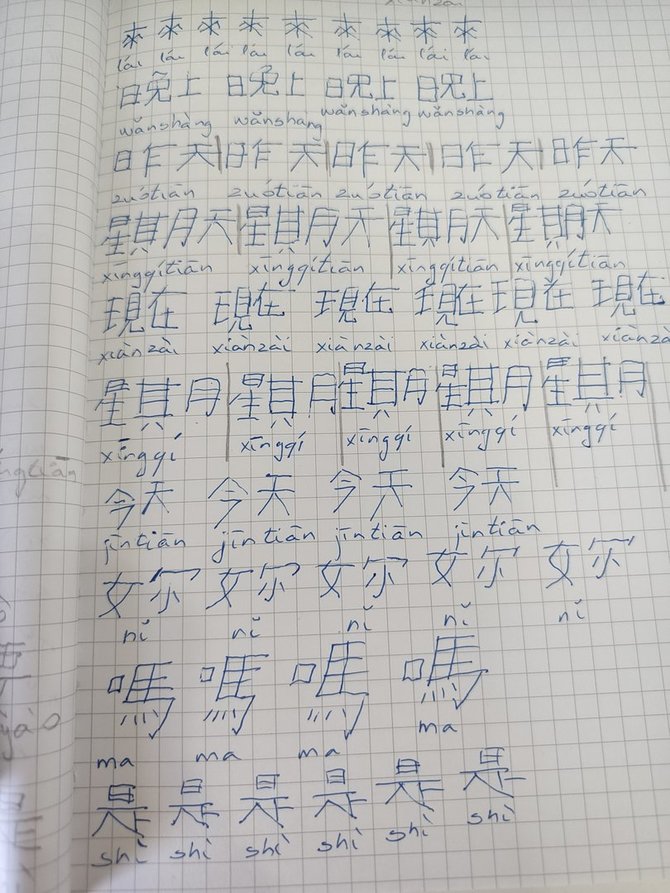 來 來 來 來 來 來 來 來 來
lái lái lái lái lái lái lái lái lái
日免上 日免上 日免上 日免上
wǎnshàng wǎnshàng wǎnshàng wǎnshàng
昨天 昨天 昨天 昨天 昨天
zuótiān zuótiān zuótiān zuótiān zuótiān
星其月天 星其月天 星期天 星期天
xīngqítiān xīngqítiān xīngqítiān xīngqítiān
現在 現在 現在 現在 現在 現在
xiànzài xiànzài xiànzài xiànzài xiànzài xiànza
星其月 星其月 星其月 星其月 星其月
xīngqí xīngqí xīngqí xīngqí xīngqí
今天 今天 今天 今天
jīntiān jīntiān jīntiān jīntiān
妳 妳 妳 妳 妳
nǐ nǐ nǐ nǐ nǐ
嗎 嗎 嗎 嗎
ma ma ma ma
是 是 是 是 是 是
shì shì shì shì shì shì